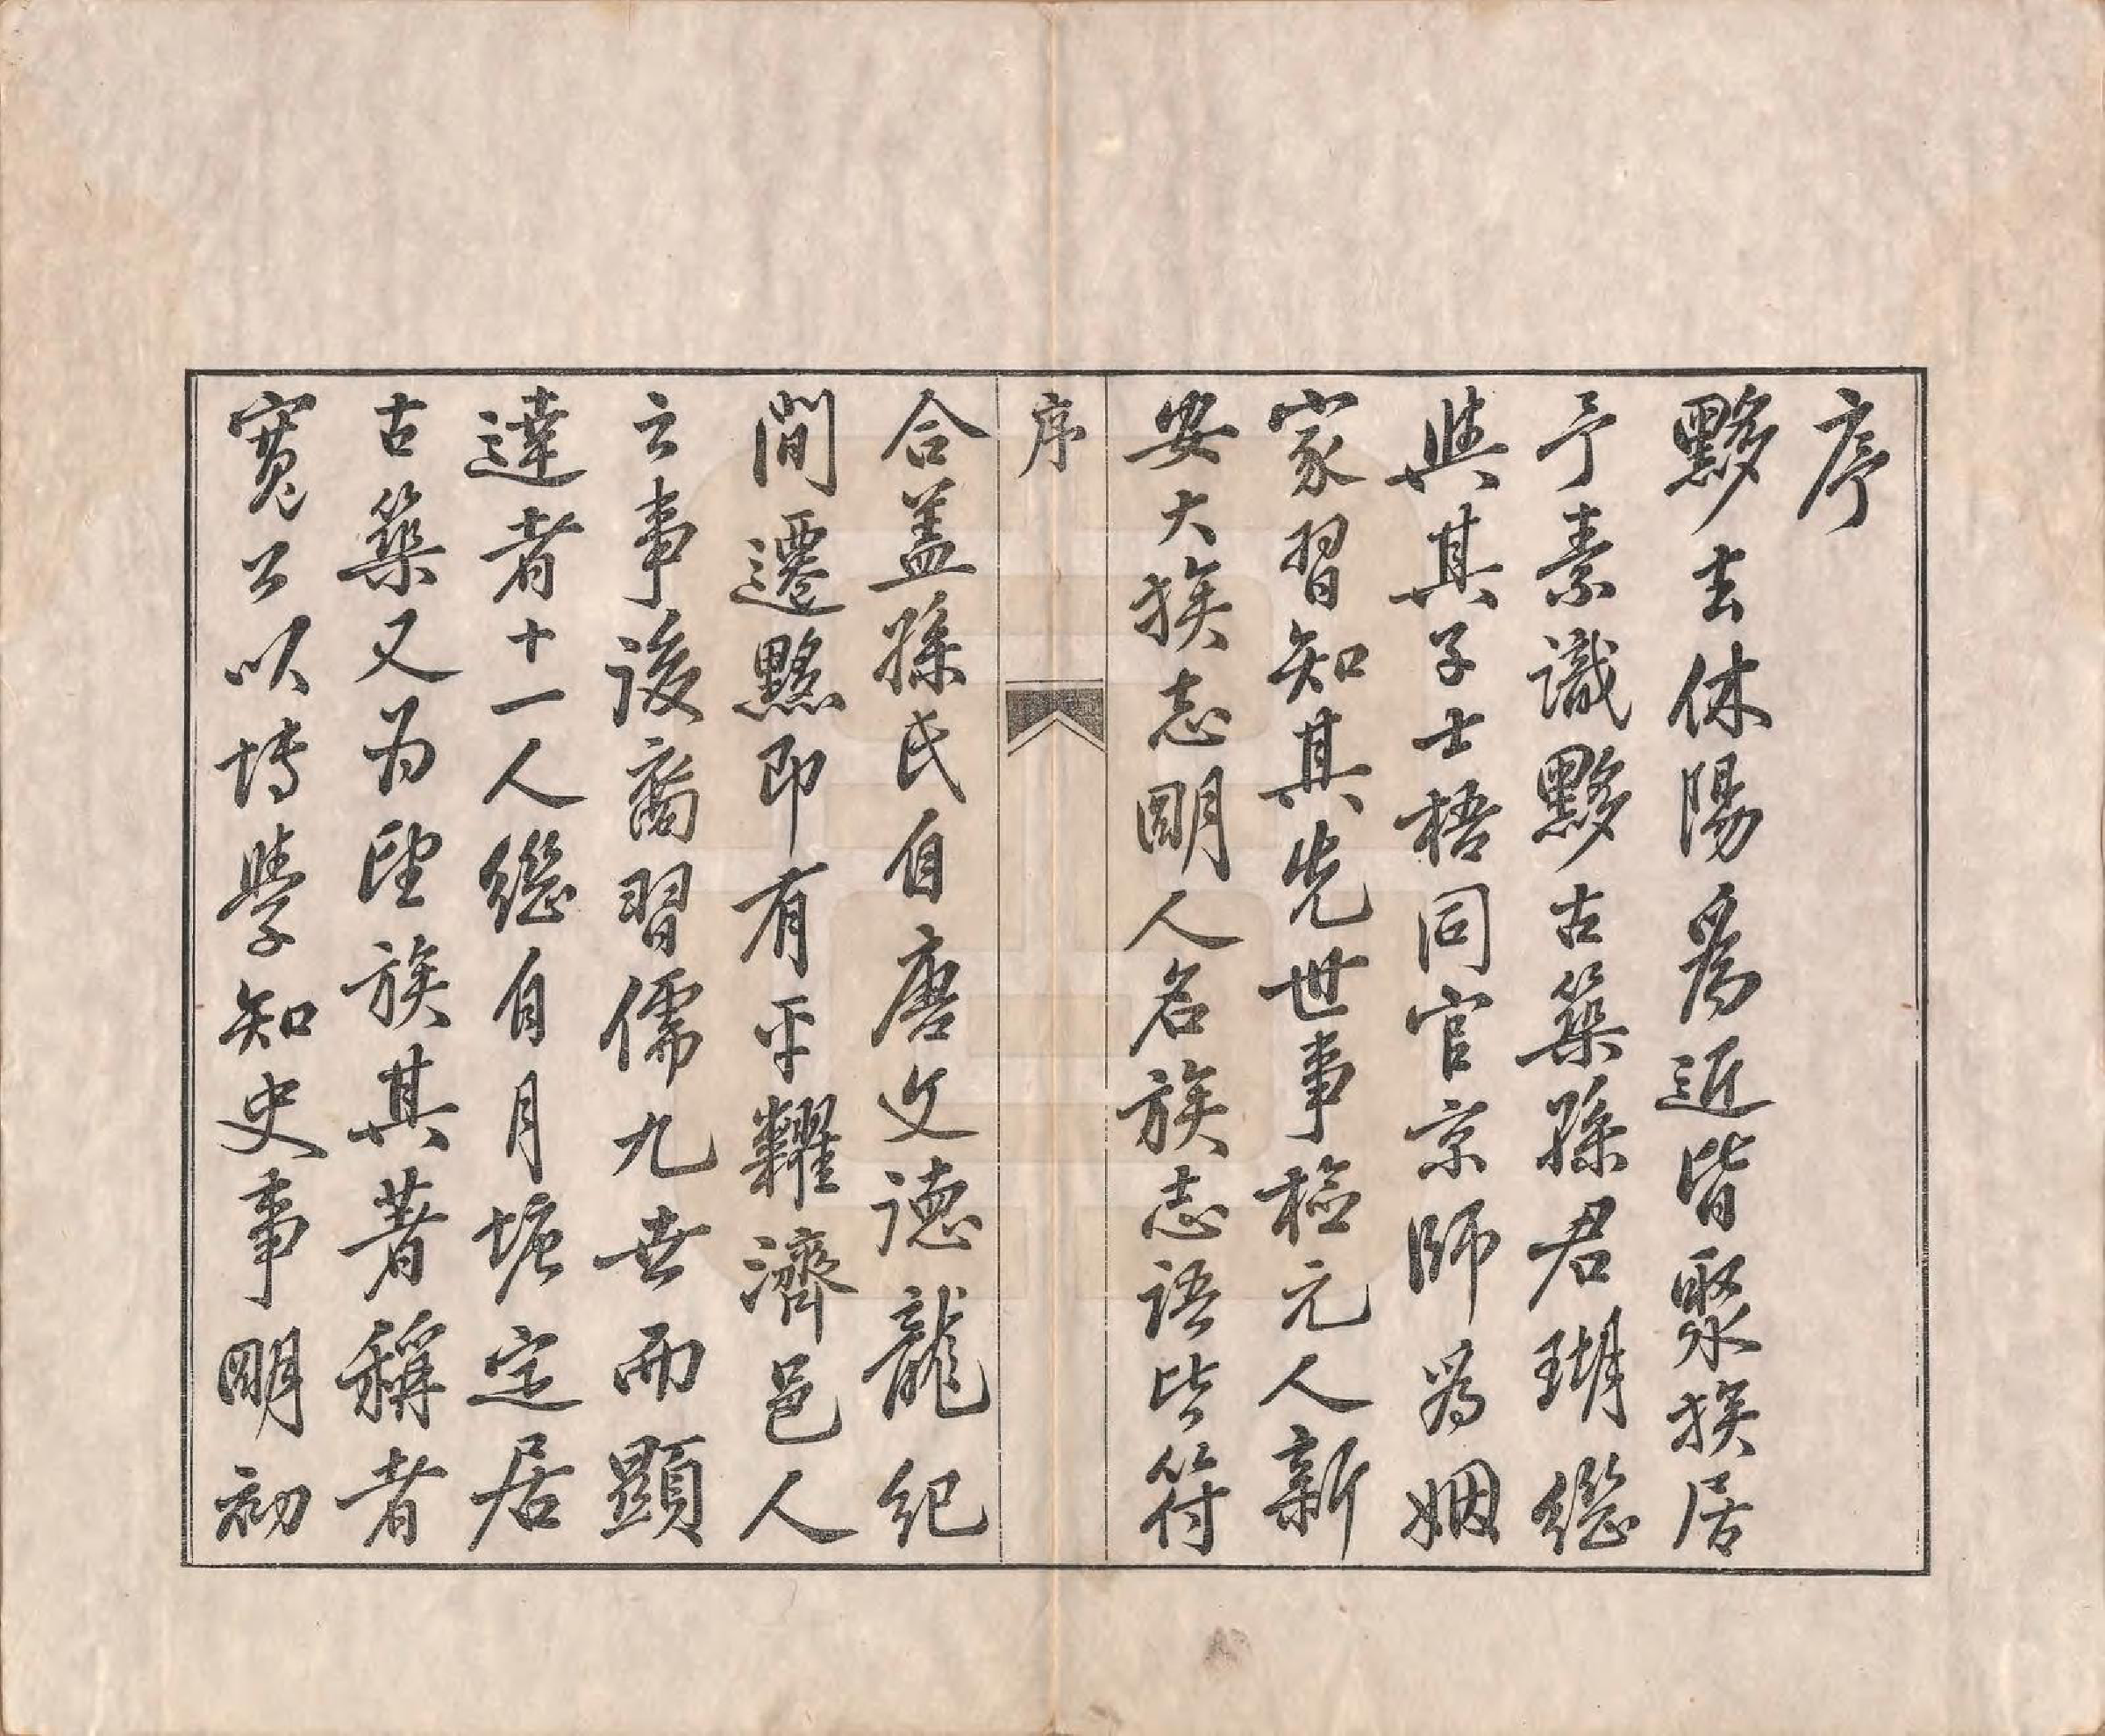 序
黟去休陽爲近皆聚族居
予素識黟古築孫君瑚繼
與其子士梧同官京師爲姻
家習知其先世事檢元人新
安大族志明人名族志語皆符
序
合盖孫氏自唐文德龍紀
間遷黟即有平糶濟邑人
之事後裔習儒九世而顯
達者十一人繼自月塘定居
古築又为望族其著稱者
寬公以博學知史事明初